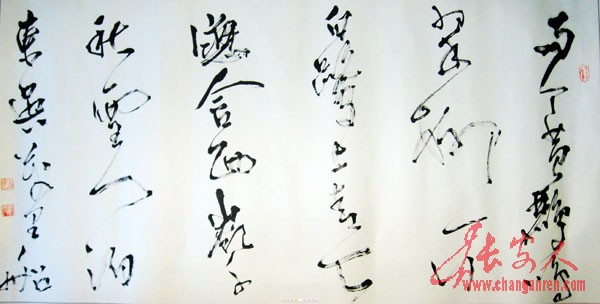 两个黄鸝鳴
翠柳一行
白鷺上青天
窗含西嶺千
秋雪门泊
東吴万里船
长安人
www.changanren.com